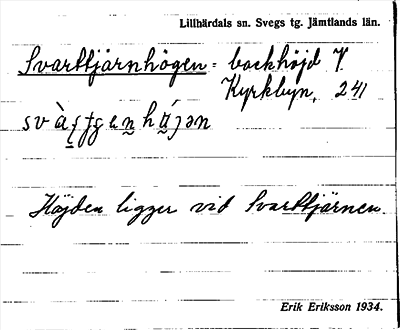 Lillhärdals sn. Svegs tg. Jämtlands län.
Svarttjärnhögen = backhöjd V.
Kyrkbyn, 241
Höjden ligger vid Svarttjärnen.
Erik Eriksson 1934.